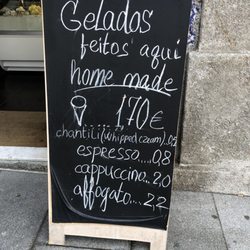 Gelados
feitos aqui
home made
1,70€
chantili (whipped cream) 0,5
espresso....0,8
cappuccino..2,0
affogato...2,2